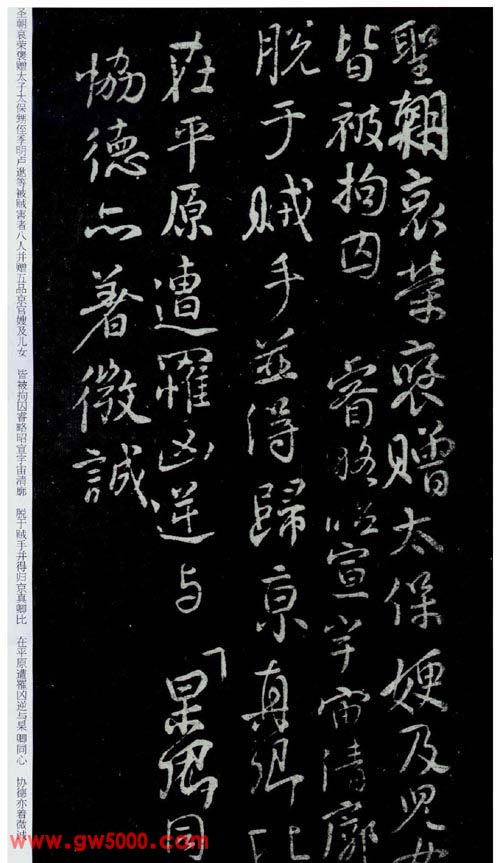 聖朝哀榮褒贈太保嫂及兒女
皆被拘囚 睿略昭宣宇宙清廓
脫于賊手並得歸京真卿比
在平原遭罹凶逆与 杲卿同
協德亦著微誠
圣朝哀荣褒赠太子太保甥侄季明卢逖等被贼害者八人并赠五品京官嫂及儿女 皆被拘囚睿略昭宣宇宙清廓 脱于贼手并得归京真卿比 在平原遭罹凶逆与杲卿同心 协德亦着微诚
www.gw5000.com